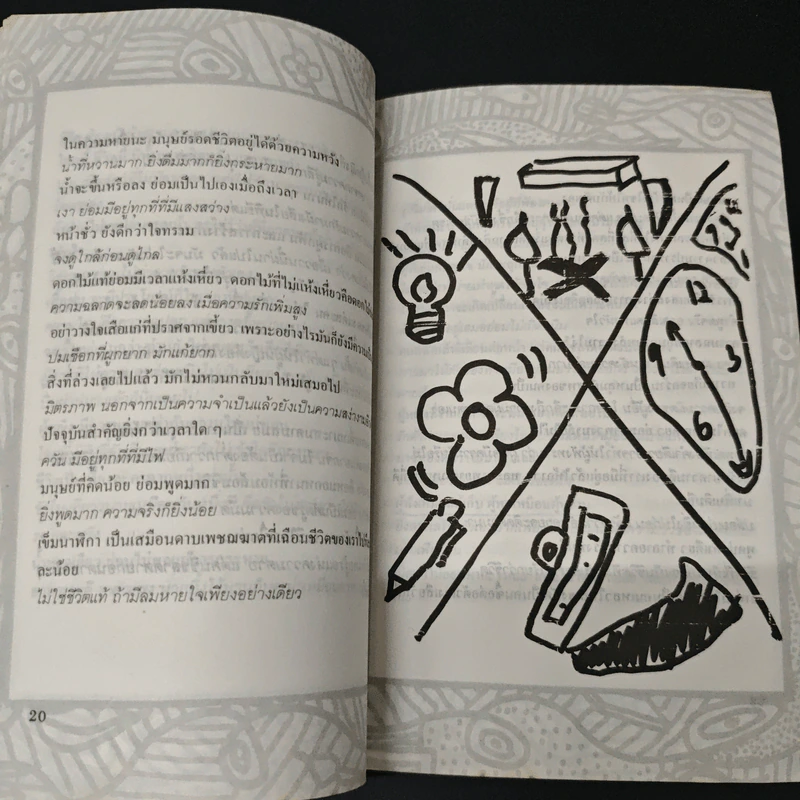 ในความหายนะ มนุษย์รอดชีวิตอยู่ได้ด้วยความหวัง
น้ำที่หวานมาก ยิ่งดื่มมากก็ยิ่งกระหายมาก
น้ำจะขึ้นหรือลง ย่อมเป็นไปเองเมื่อถึงเวลา
เงา ย่อมมีอยู่ทุกที่ที่มีแสงสว่าง
หน้าชั่ว ยังดีกว่าใจทราม
จงดูใกล้ก่อนดูไกล
ดอกไม้แท้ย่อมมีเวลาแห้งเหี่ยว ดอกไม้ที่ไม่แห้งเหี่ยวคือดอกไม้
ความฉลาดจะลดน้อยลง เมื่อความรักเพิ่มสูง
อย่าวางใจเสือแก่ที่ปราศจากเขี้ยว เพราะอย่างไรมันก็ยังมี
ปมเชือกที่ผูกยาก มักแก้ยาก
สิ่งที่ล่วงเลยไปแล้ว มักไม่หวนกลับมาใหม่เสมอไป
มิตรภาพ นอกจากเป็นความจำเป็นแล้วยังเป็นความสง่างาม
ปัจจุบันสำคัญยิ่งกว่าเวลาใด ๆ
ควัน มีอยู่ทุกที่ที่มีไฟ
มนุษย์ที่คิดน้อย ย่อมพูดมาก
ยิ่งพูดมาก ความจริงก็ยิ่งน้อย
เข็มนาฬิกา เป็นเสมือนดาบเพชฌฆาตที่เฉือนชีวิตของเราไป
ละน้อย
ไม่ใช่ชีวิตแท้ ถ้ามีลมหายใจเพียงอย่างเดียว
20
!
12
9 3
6